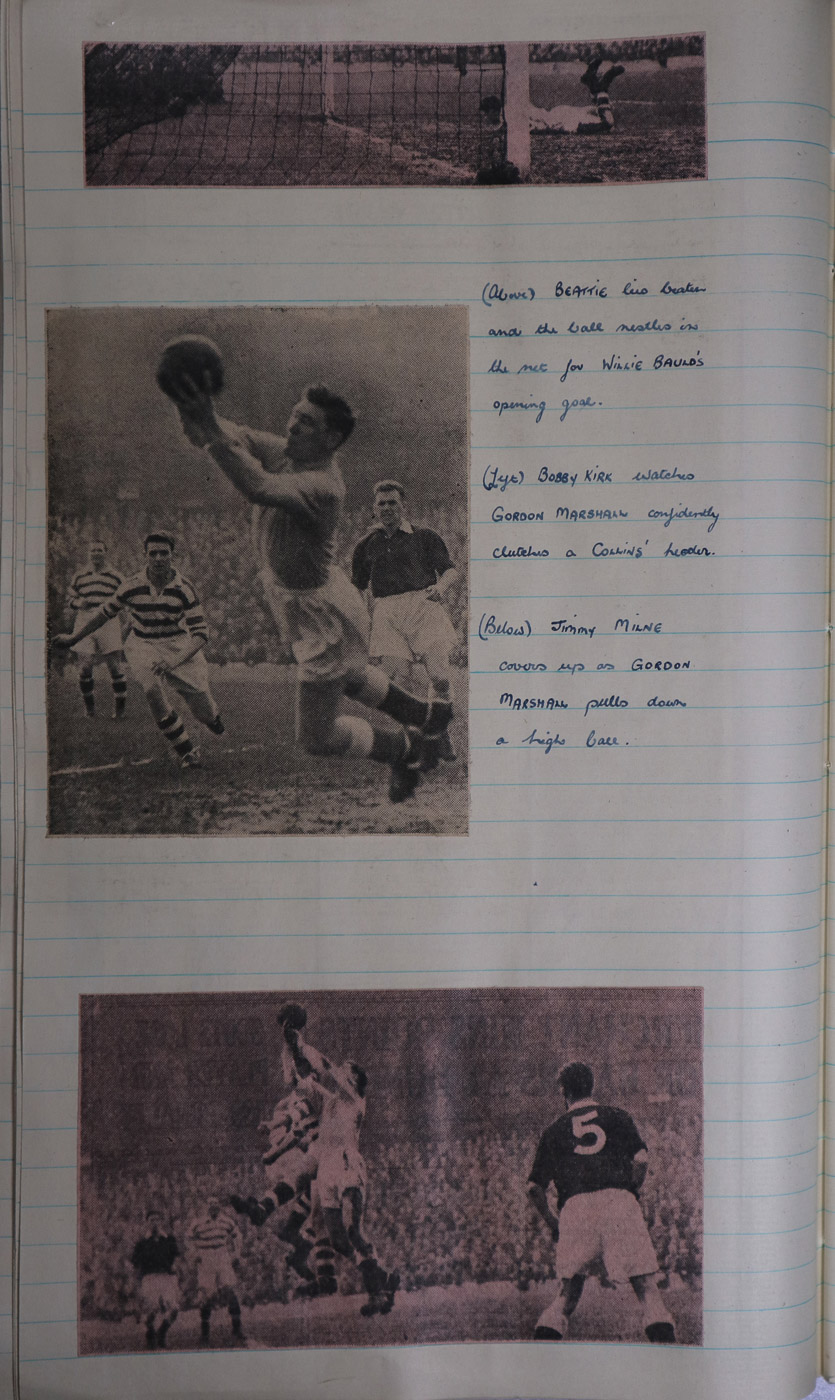 (Above) BEATTIE lies beaten
and the ball nestles in
the net for WILLIE BAULD'S
opening goal.
(Left) BOBBY KIRK watches
GORDON MARSHALL confidently
clutches a COLLINS' header.
(Below) JIMMY MILNE
covers up as GORDON
MARSHALL pulls down
a high ball.
5